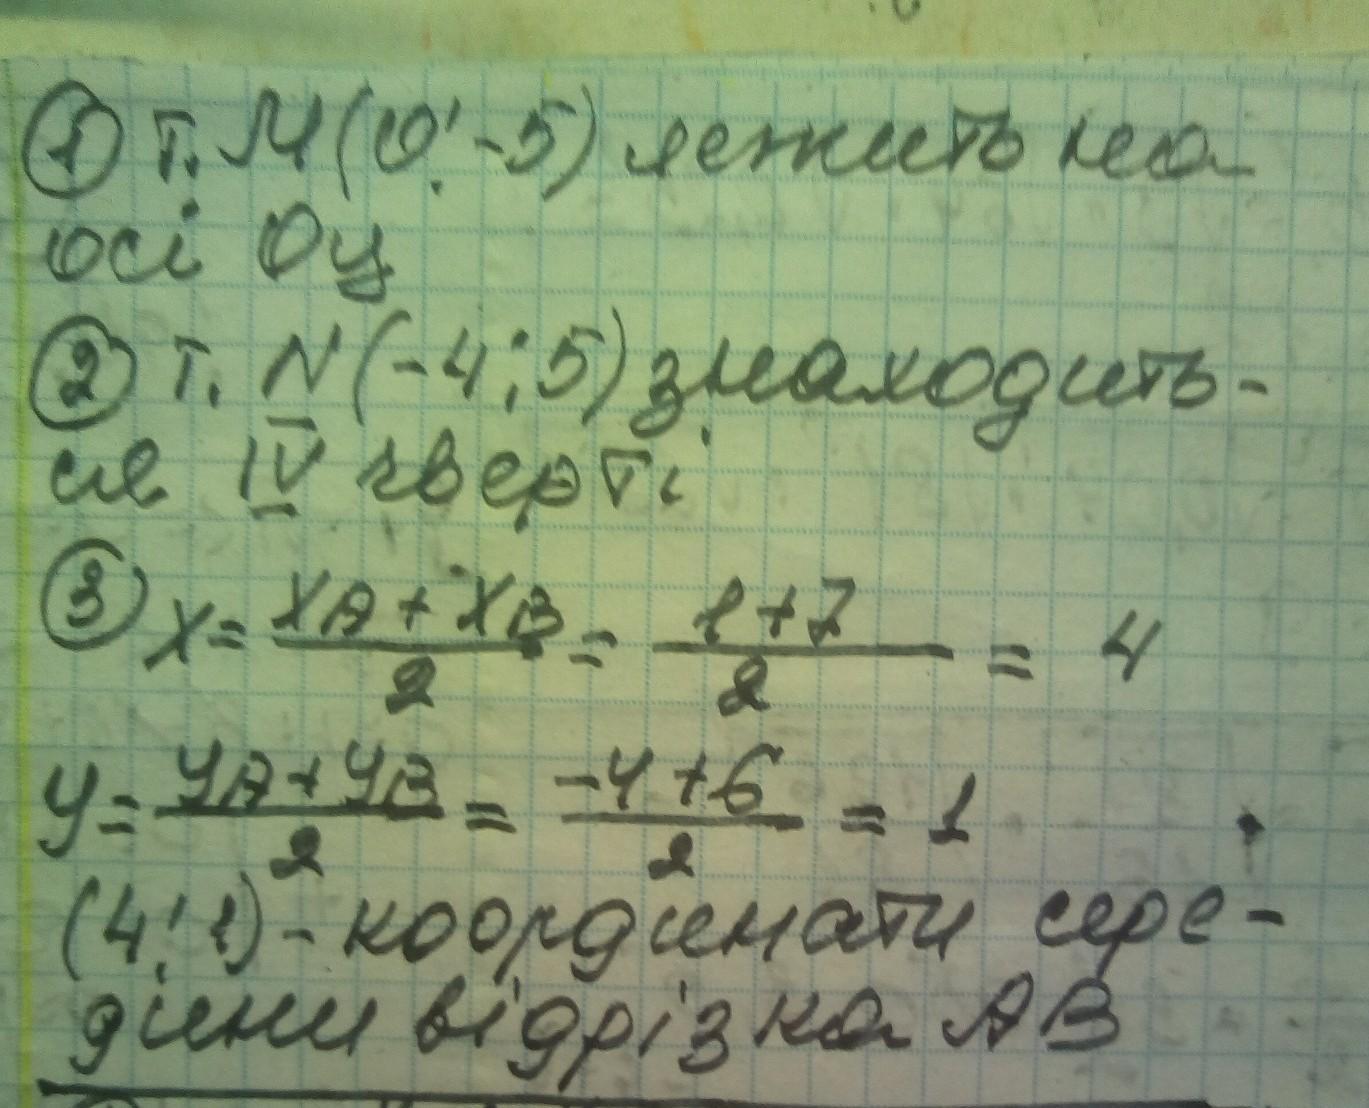 ① т. М (0; -5) лежить на
осі Оу
② т. N (-4; 5) знаходить-
ся IV чверті
③ x = (xA + xB)/2 = (1+7)/2 = 4
y = (yA + yB)/2 = (-4+6)/2 = 1
(4; 1) - координати сере-
дини відрізка АВ